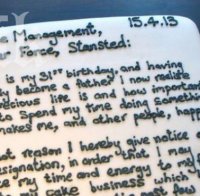 15.4.13
Management,
Force, Stansted:
is my 31st birthday, and having
become a father I now realise
life is and how important
to spend my time doing something
makes me, and other people, happ
reason I hereby give notice
resignation, in order that I may
my time and energy to my
cake business which